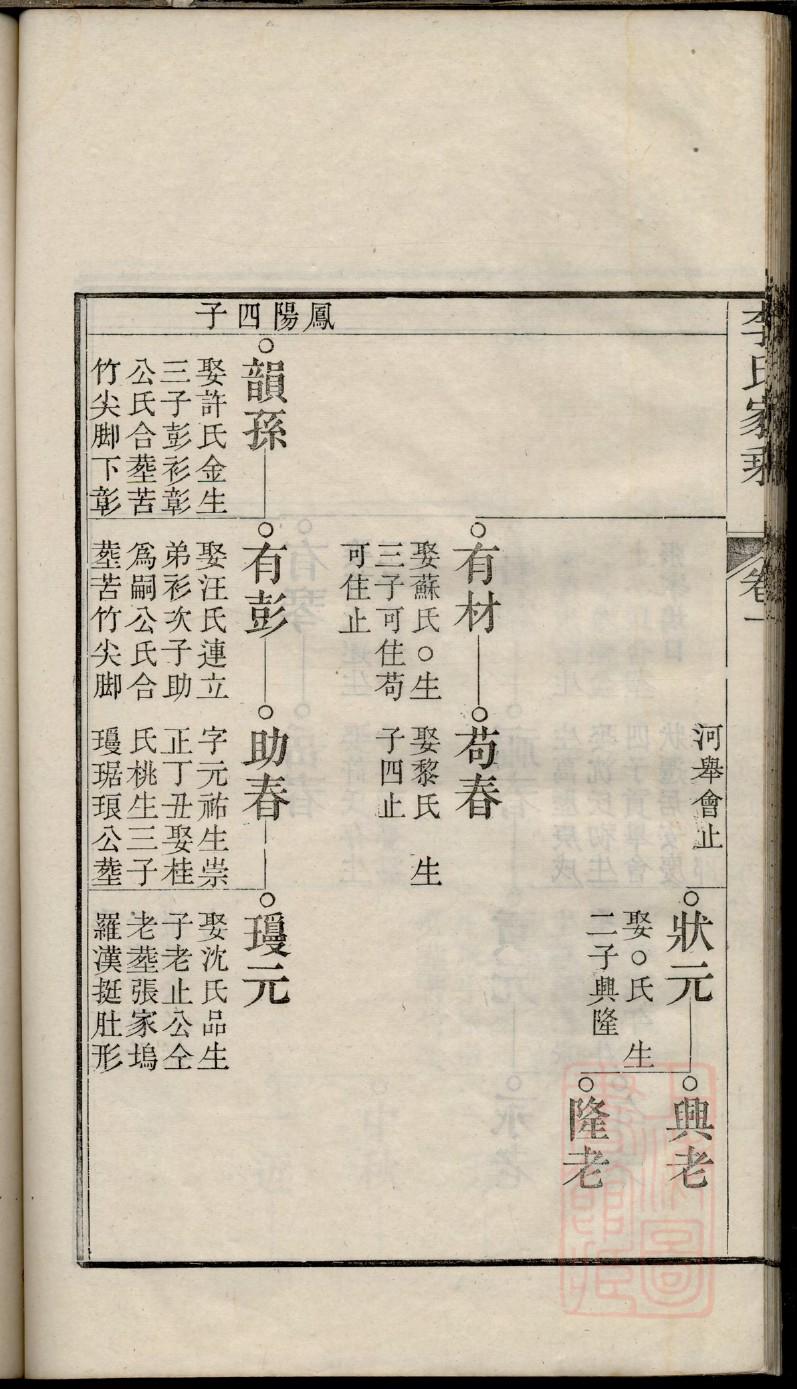 李氏家乘
卷一
河舉會止
狀元
娶○氏　生
二子興隆
興老
隆老
有材
娶蘇氏○生
三子可住苟
可住止
苟春
娶黎氏　生
子四止
鳳陽四子
韻孫
娶許氏金生
三子彭衫彰
公氏合塟苦
竹尖脚下彰
有彭
娶汪氏連立
弟衫次子助
爲嗣公氏合
塟苦竹尖脚
助春
字元祐生崇
正丁丑娶桂
氏桃生三子
璦琚琅公塟
璦元
娶沈氏品生
子老止公仝
老塟張家塢
羅漢挺肚形